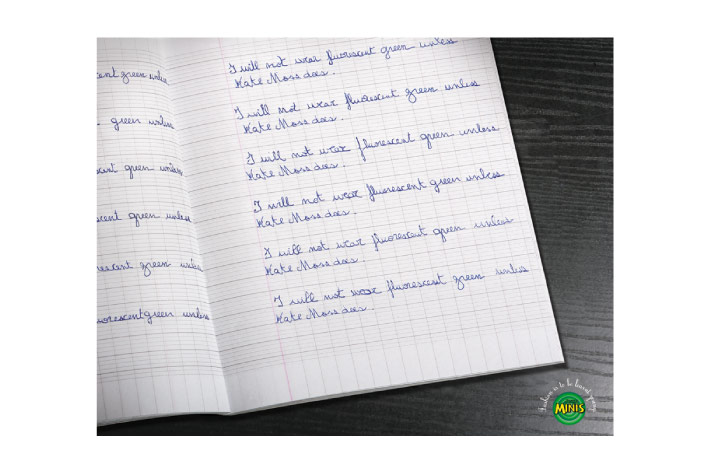 cent green unless
green unless
cent green unless
scent green unless
rescent green unless
uorescent green unless
I will not wear fluorescent green unless
Kate Moss does.
I will not wear fluorescent green unless
Kate Moss does.
I will not wear fluorescent green unless
Kate Moss does.
I will not wear fluorescent green unless
Kate Moss does.
I will not wear fluorescent green unless
Kate Moss does.
I will not wear fluorescent green unless
Kate Moss does.
Fashion is to be learnt young
MINIS